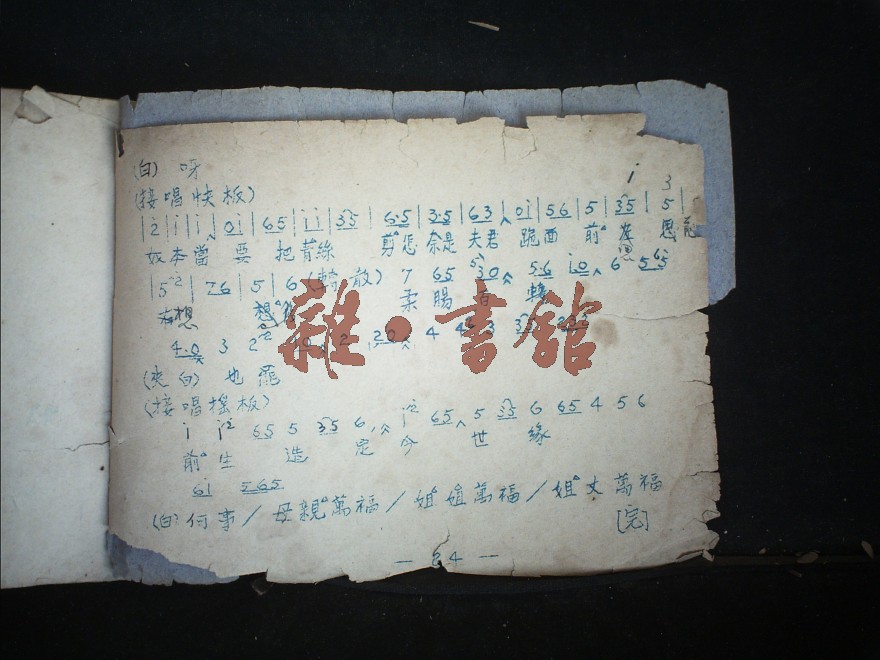 (白) 呀
(接唱快板)
i 3
|2|i|i|0i|65|ii|35|6·5|3·5|63|0i|56|5|35|5|
奴本當 要 把青絲 剪 怎奈是夫君 跪面 前 恩
|5 2|76|5|6 (轉散) 7 65 30 56 i0 6 565
想 柔腸 轉
4·0 3 2 2 20 4 3
(夾白) 也罷
(接唱搖板)
i i2 65 5 35 6 i2 65 5 35 6 65 4 5 6
前 生 造 定 今 世 緣
6i 565
(白) 何事/母親萬福/姐姐萬福/姐丈萬福
[完]
— 24 —
雜·書館